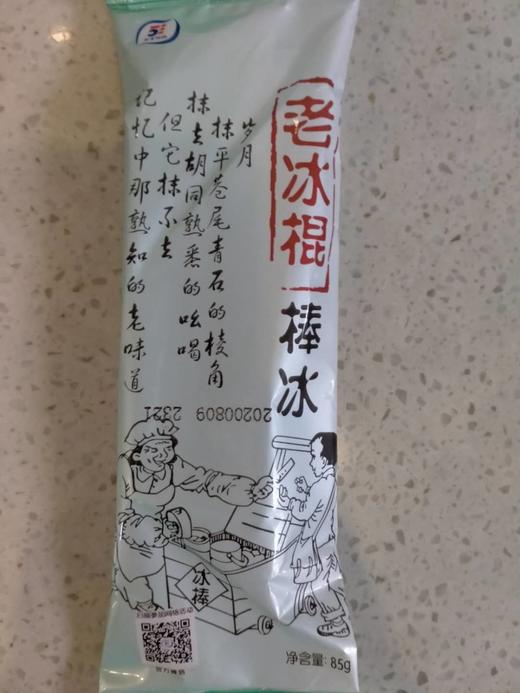 老冰棍
棒冰
岁月
抹平巷尾青石的棱角
抹去胡同熟悉的吆喝
但它抹不去
记忆中那熟知的老味道
20200809
2321
冰棒
扫码参加网络活动
官方商城
净含量: 85g